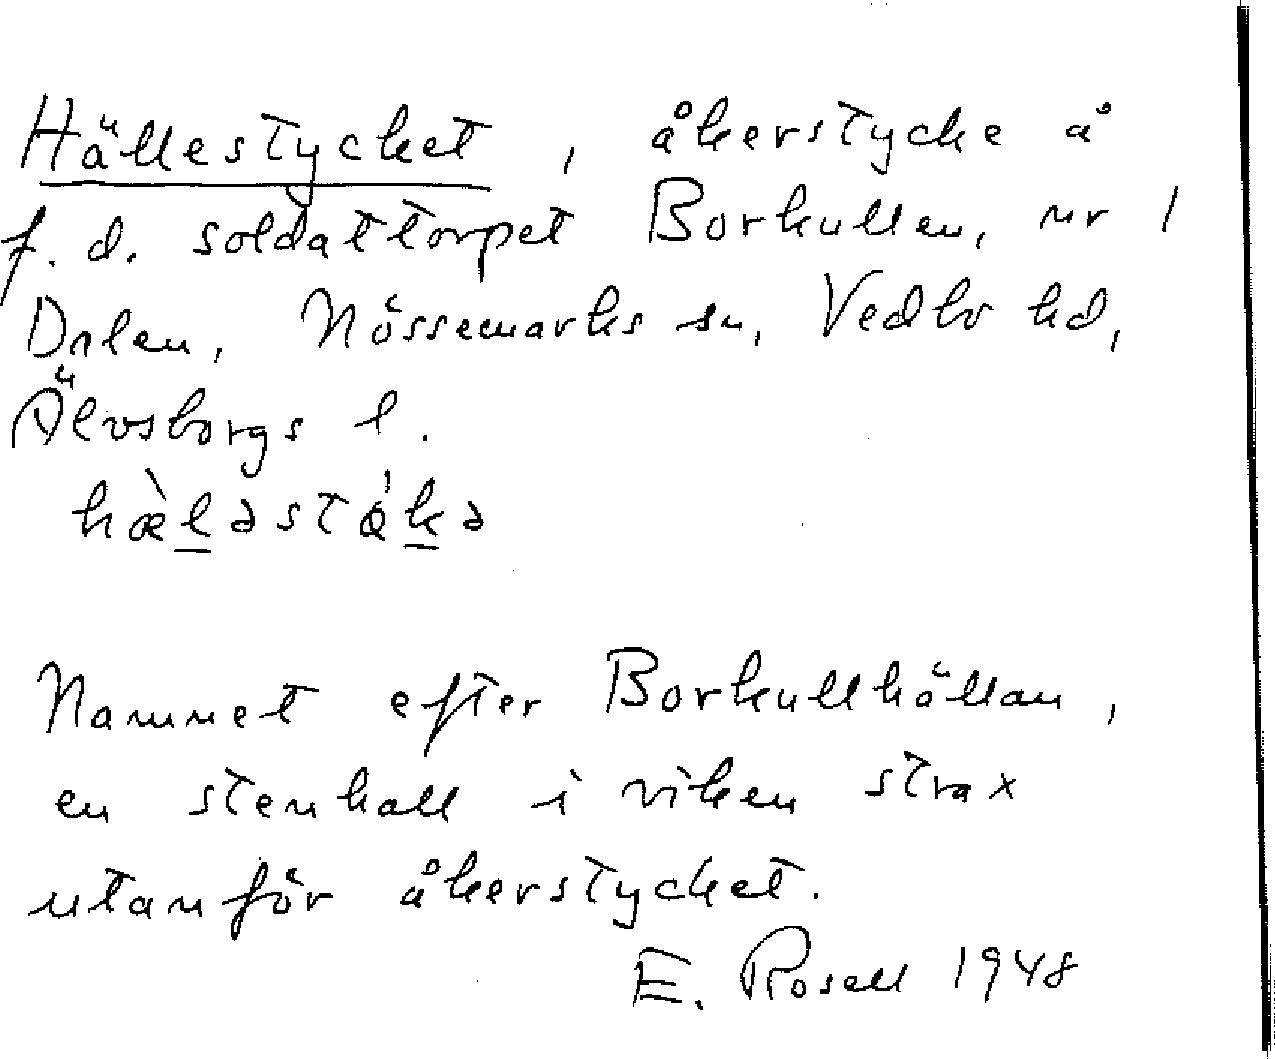 Hällestycket, åkerstycke å
f. d. soldattorpet Borkullen, nr 1
Dalen, Nössemarks sn, Vedbo hd,
Älvsborgs l.
hæ̀ləstǿkə
Namnet efter Borkullhällan,
en stenhall i viken strax
utanför åkerstycket.
E. Rosell 1948